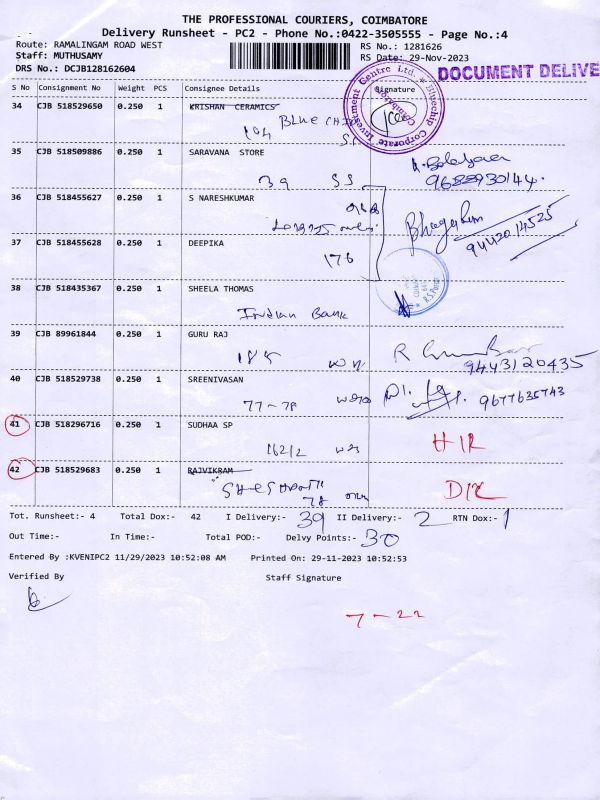 THE PROFESSIONAL COURIERS, COIMBATORE
Delivery Runsheet - PC2 - Phone No.:0422-3505555 - Page No.:4
Route: RAMALINGAM ROAD WEST RS No.: 1281626
Staff: MUTHUSAMY RS Date: 29-Nov-2023
DRS No.: DCJB128162604
DOCUMENT DELIVE
S No Consignment No Weight PCS Consignee Details Signature
Bluechip Corporate Investment Centre Ltd. * Coimbatore
34 CJB 518529650 0.250 1 KRISHAN CERAMICS
104 BLUE CHIP
S.S
35 CJB 518509886 0.250 1 SARAVANA STORE
39 S.S. 9688930144.
36 CJB 518455627 0.250 1 S NARESHKUMAR
9442014525
37 CJB 518455628 0.250 1 DEEPIKA
176
38 CJB 518435367 0.250 1 SHEELA THOMAS
Indian Bank
39 CJB 89961844 0.250 1 GURU RAJ
185 9443120435
40 CJB 518529738 0.250 1 SREENIVASAN
77-78 9677635743
41 CJB 518296716 0.250 1 SUDHAA SP
162/2
42 CJB 518529683 0.250 1 RAJVIKRAM
78
Tot. Runsheet:- 4 Total Dox:- 42 I Delivery:- 39 II Delivery:- 2 RTN Dox:- 1
Out Time:- In Time:- Total POD:- Delvy Points:- 30
Entered By :KVENIPC2 11/29/2023 10:52:08 AM Printed On: 29-11-2023 10:52:53
Verified By Staff Signature
7-22